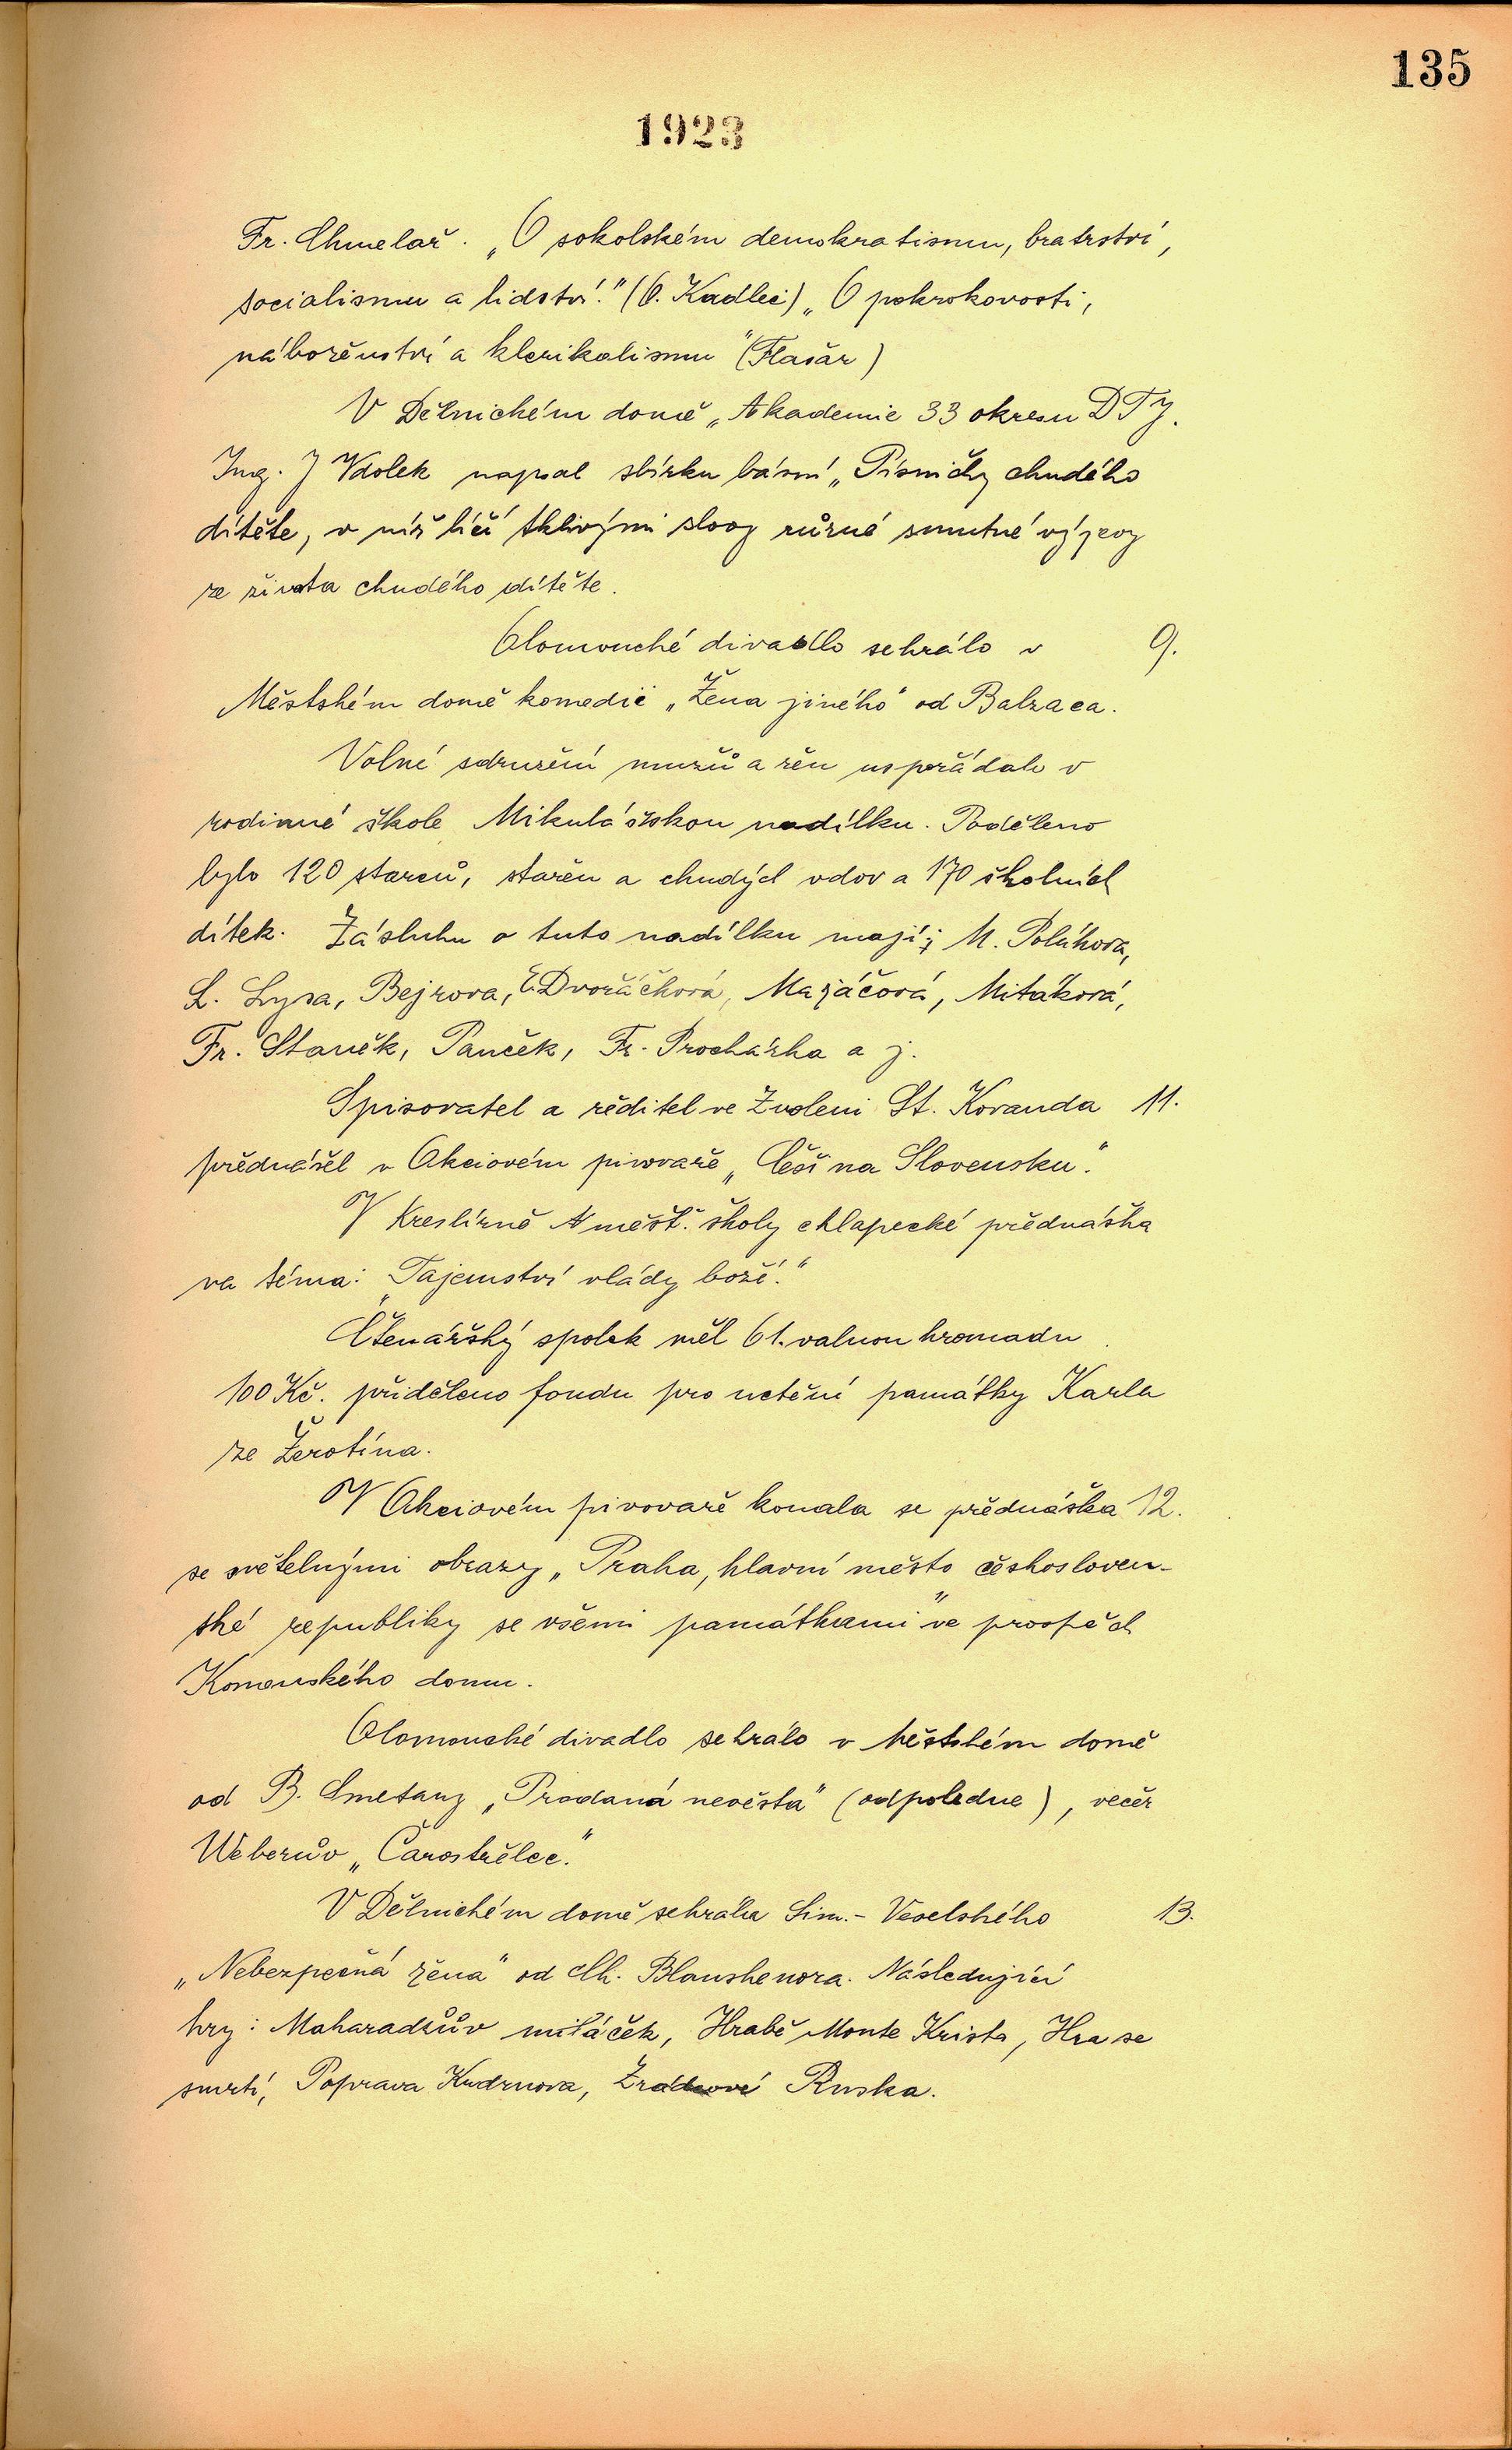 135
1923
Fr. Chmelař. „O sokolském demokratismu, bratrství,
socialismu a lidství." (O. Kadlec) „O pokrokovosti,
náboženství a klerikalismu" (Flasar)
V Dělnickém domě „Akademie 33 okresu DTJ.
Ing. J Vdolek napsal sbírku básní „Písničky chudého
dítěte, v níž líčí tklivými slovy různé smutné výjevy
ze života chudého dítěte.
Olomoucké divadlo sehrálo v 9.
Městském domě komedii „Žena jiného" od Balzaca.
Volné sdružení mužů a žen uspořádalo v
rodinné škole Mikulášskou nadílku. Poděleno
bylo 120 starců, stařen a chudých vdov a 170 školních
dítek. Zásluhu o tuto nadílku mají; M. Polúhova,
L. Lysa, Bejrova, E. Dvořáčková, Majáčová, Mitáková,
Fr. Staněk, Panček, Fr. Procházka a j.
Spisovatel a ředitel ve Zvoleni St. Koranda 11.
přednášel v Akciovém pivovaře „Češi na Slovensku."
V kreslírně měšť. školy chlapecké přednáška
na téma: „Tajemství vlády boží."
Čtenářský spolek měl 61. valnou hromadu
100 Kč. přiděleno fondu pro uctění památky Karla
ze Žerotína.
V Akciovém pivovaře konala se přednáška 12.
se světelnými obrazy „Praha, hlavní město českosloven-
ské republiky se všemi památkami" ve prospěch
Komenského domu.
Olomoucké divadlo sehrálo v Městském domě
od B. Smetany „Prodaná nevěsta" (odpoledne), večer
Weberův „Čarostřelec."
V Dělnickém domě sehrála Sim.- Veselského 13.
„Nebezpečná žena" od Ch. Blanshenora. Následující
hry: Maharadžův miláček, Hrabě Monte Krista, Hra se
smrtí, Poprava Kudrnova, Zrádcové Ruska.